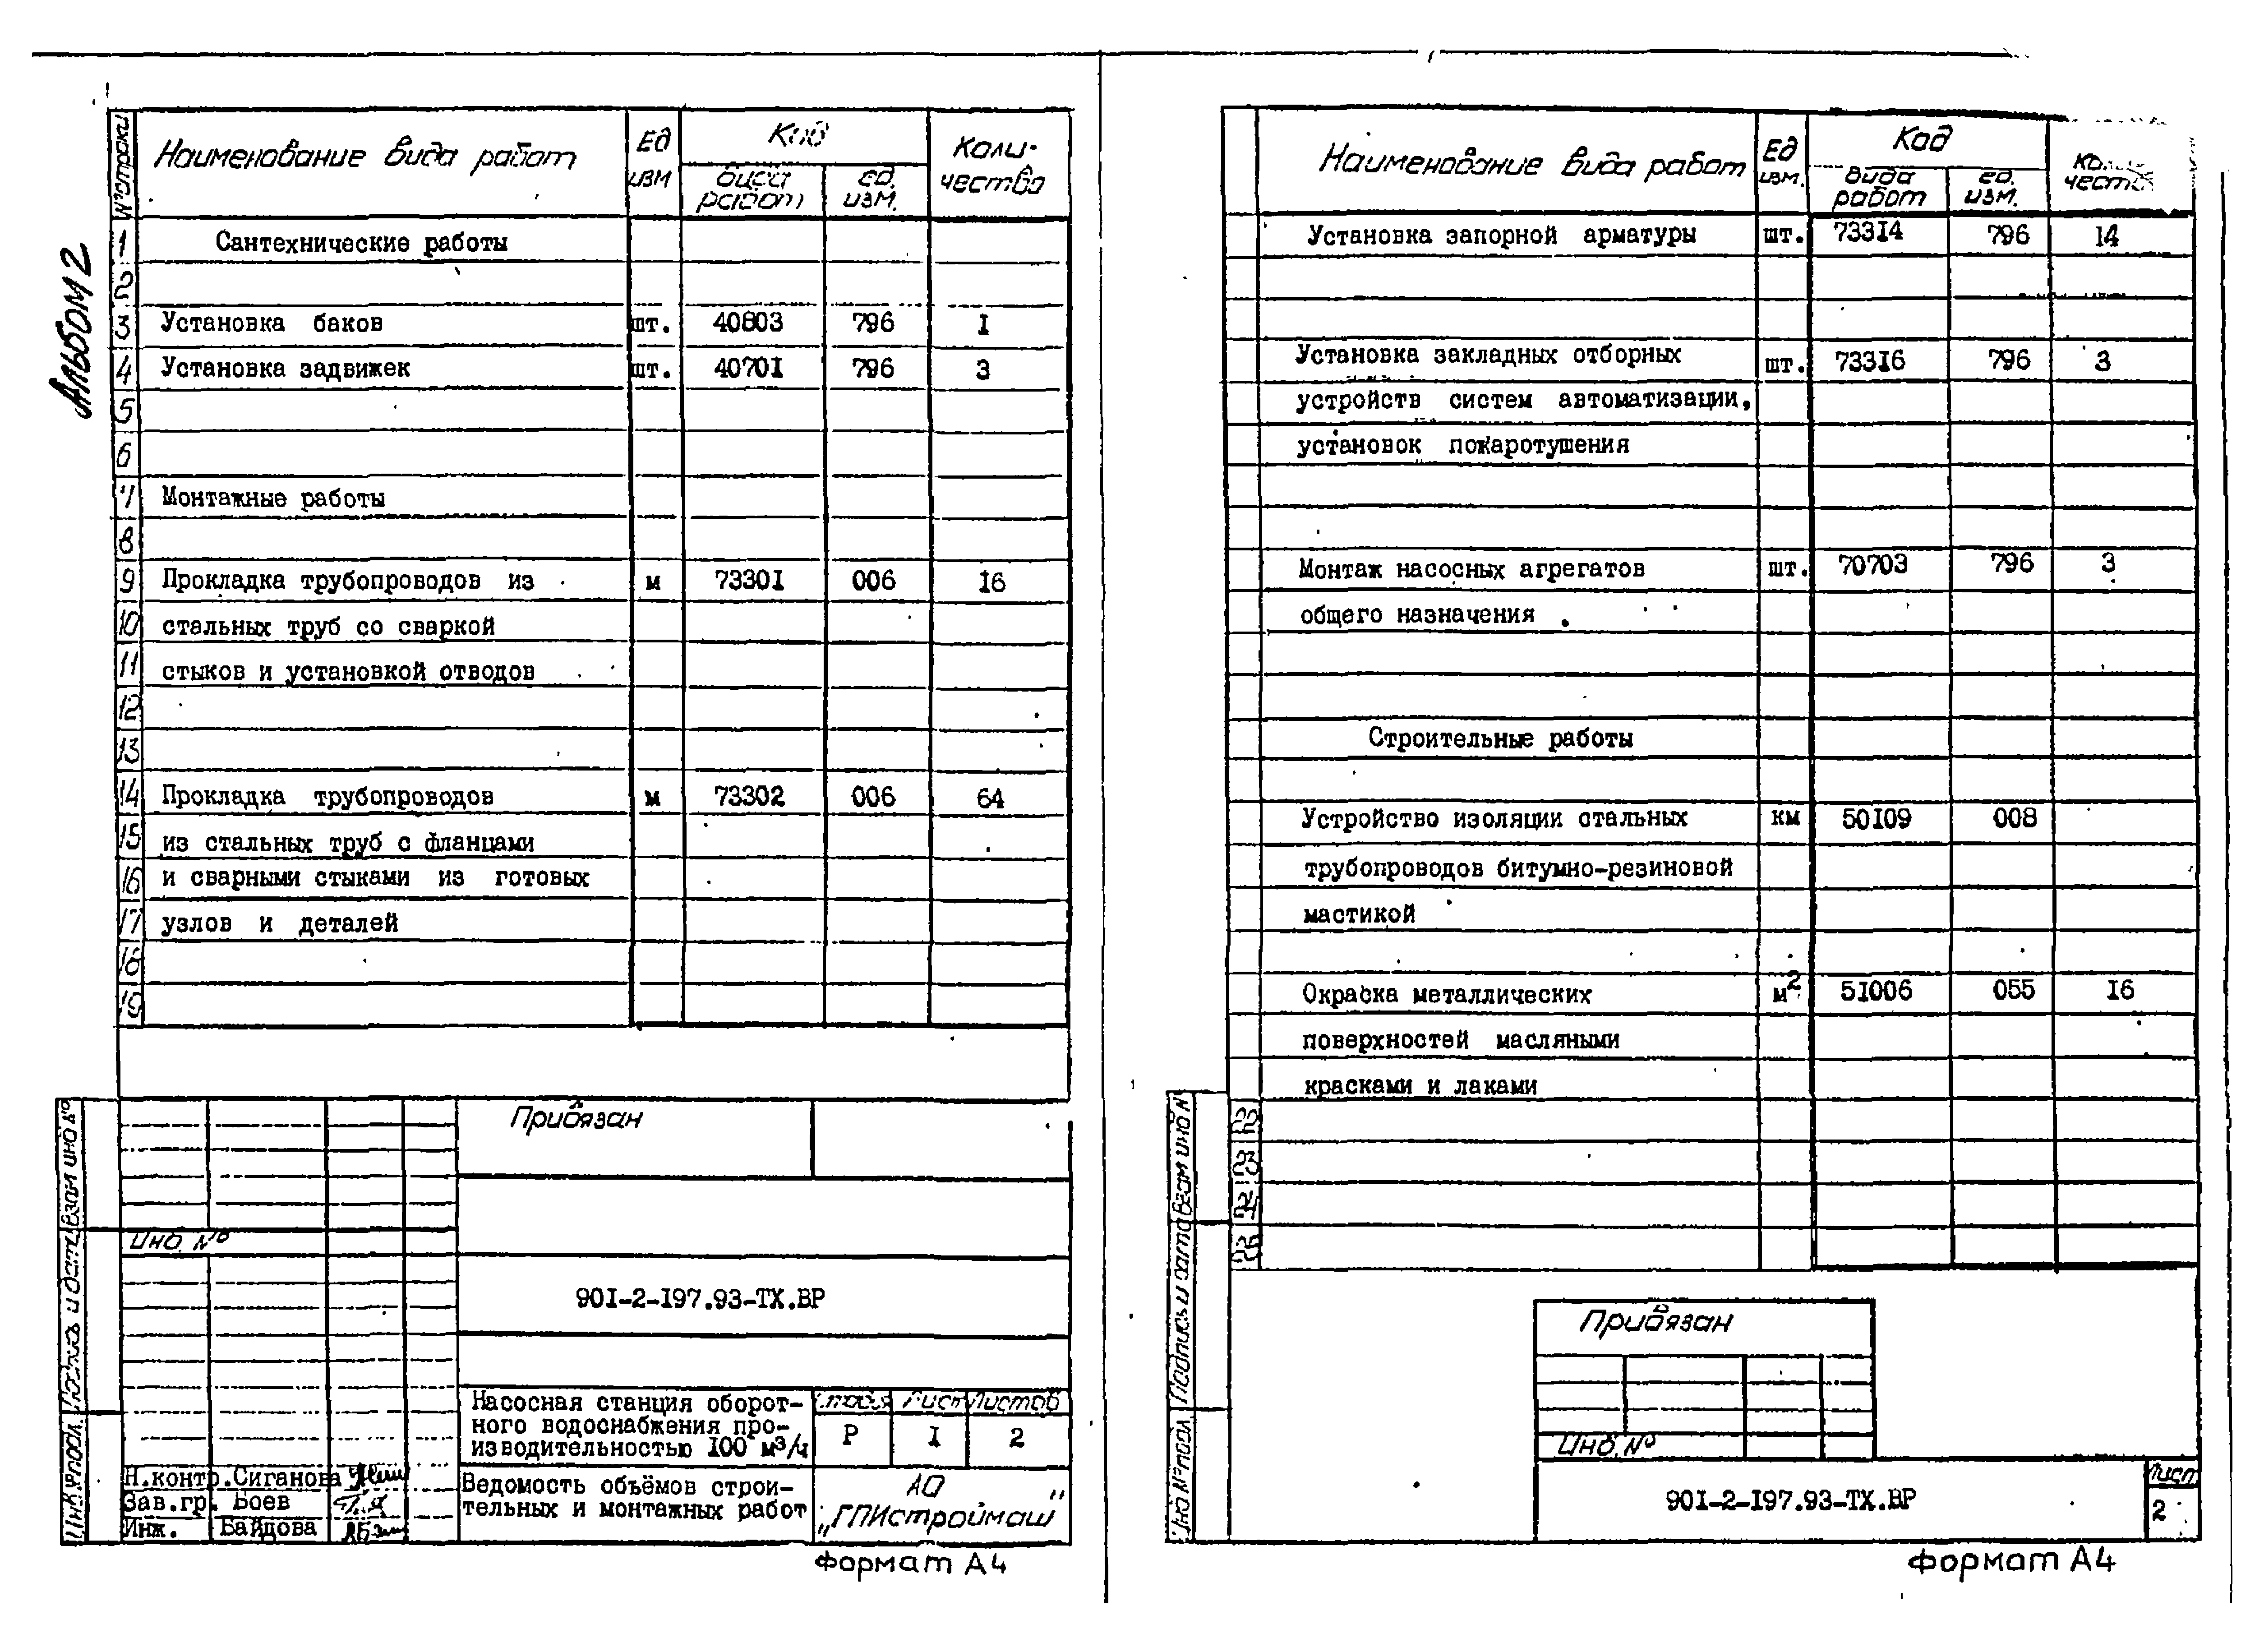 Альбом 2
№ строки
Наименование вида работ
Ед изм
Код
вида работ
ед. изм.
Коли-
чество
1 Сантехнические работы
2
3 Установка баков шт. 40803 796 I
4 Установка задвижек шт. 40701 796 3
5
6
7 Монтажные работы
8
9 Прокладка трубопроводов из м 73301 006 I6
10 стальных труб со сваркой
11 стыков и установкой отводов
12
13
14 Прокладка трубопроводов м 73302 006 64
15 из стальных труб с фланцами
16 и сварными стыками из готовых
17 узлов и деталей
18
19
Привязан
Инв. №
90I-2-I97.93-ТХ.ВР
Насосная станция оборот-
ного водоснабжения про-
изводительностью I00 м³/ч
Стадия Лист Листов
Р I 2
Н.контр. Сиганова
Зав.гр. Боев
Инж. Байдова
Ведомость объёмов строи-
тельных и монтажных работ
АО
„ГПИстроймаш"
Инв № подл. Подпись и дата Взам инв №
Формат А4
Наименование вида работ
Ед изм.
Код
вида работ
ед. изм.
Установка запорной арматуры шт. 733I4 796 I4
Установка закладных отборных шт. 733I6 796 3
устройств систем автоматизации,
установок пожаротушения
Монтаж насосных агрегатов шт. 70703 796 3
общего назначения
Строительные работы
Устройство изоляции стальных км 50I09 008
трубопроводов битумно-резиновой
мастикой
Окраска металлических м² 5I006 055 I6
поверхностей масляными
красками и лаками
22
23
24
25
Инв № подл. Подпись и дата Взам инв №
Привязан
Инв. №
90I-2-I97.93-ТХ.ВР
Лист
2
Формат А4